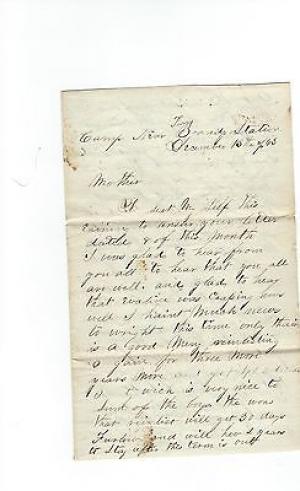 Camp Near Brandy Station
December 13th /63
Mother
I seat My self This
Evening to answer your letter
dated 8 of this Month
I was glad to hear from
you all to hear that you all
are well and glad to hear
that Evaline was
well I haint Much news
to wright this time only thair
is a good Meny
a gain for three More
years More
wich is very nice to
Sum of the boys the ones
that reinlist will get 30 days
Furlow and will have 2 years
to Stay after this term is out